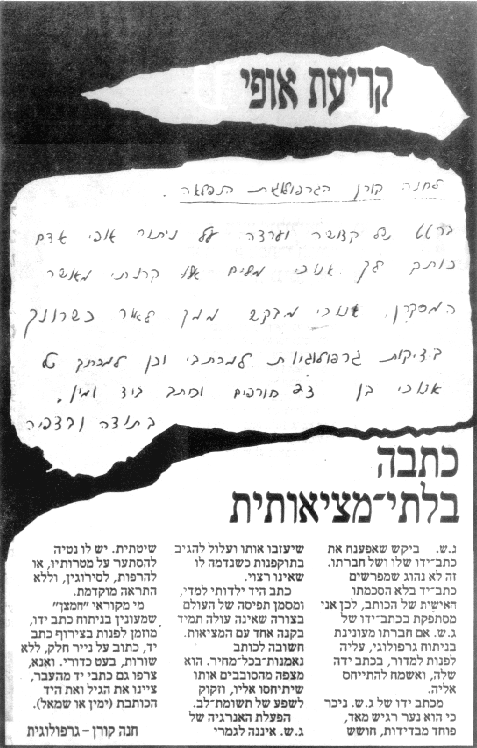 קריעת אופי
לחנה קורן הגרפולוגית הנפלאה.
ברטט של קדושה וערצה על ניתור אופי אדם
כותב לך אנוכי מלים אלו קרנתי מאשר
המסקרן. אנוכי מבקש ממך לאור כשרונך
בדיקות גרפולוגיות למכתבי וכן למכתב של
אנוכי בן חורפים וכותב ביד ימין.
בתודה ובצפיה
כתבה
בלתי־מציאותית
ג.ש. ביקש שאפענח את
כתב־ידו שלו ושל חברתו.
זה לא נהוג שמפרשים
כתב־יד בלא הסכמתו
האישית של הכותב, לכן אני
מסתפקת בכתב־ידו של
ג.ש. אם חברתו מעונינת
בניתוח גרפולוגי, עליה
לפנות למדור, בכתב ידה
שלה, ואשמח להתייחס
אליה.
מכתב ידו של ג.ש. ניכר
כי הוא נער רגיש מאד,
פוחד מבדידות, חושש
שיעזבו אותו ועלול להגיב
בתוקפנות כשנדמה לו
שאינו רצוי.
כתב היד ילדותי למדי,
ומסמן תפיסה של העולם
בצורה שאינה עולה תמיד
בקנה אחד עם המציאות.
חשובה לכותב
נאמנות־בכל־מחיר. הוא
מצפה מהסובבים אותו
שיתיחסו אליו, וזקוק
לשפע של תשומת־לב.
הפעלת האנרגיה של
ג.ש. איננה לגמרי
שיטתית. יש לו נטיה
להסתער על מטרותיו, או
להרפות, לסירוגין, וללא
התראה מוקדמת.
מי מקוראי "חמצך"
שמעונין בניתוח כתב ידו,
מוזמן לפנות בצירוף כתב
יד, כתוב על נייר חלק, ללא
שורות, בעט כדורי. ואנא,
צרפו גם כתבי יד מהעבר,
ציינו את הגיל ואת היד
הכותבת (ימין או שמאל).
חנה קורן – גרפולוגית